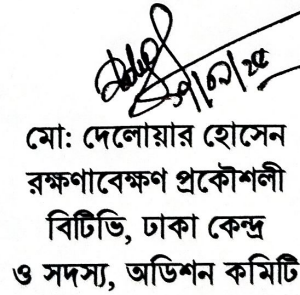 মো: দেলোয়ার হোসেন
রক্ষণাবেক্ষণ প্রকৌশলী
বিটিভি, ঢাকা কেন্দ্র
ও সদস্য, অডিশন কমিটি